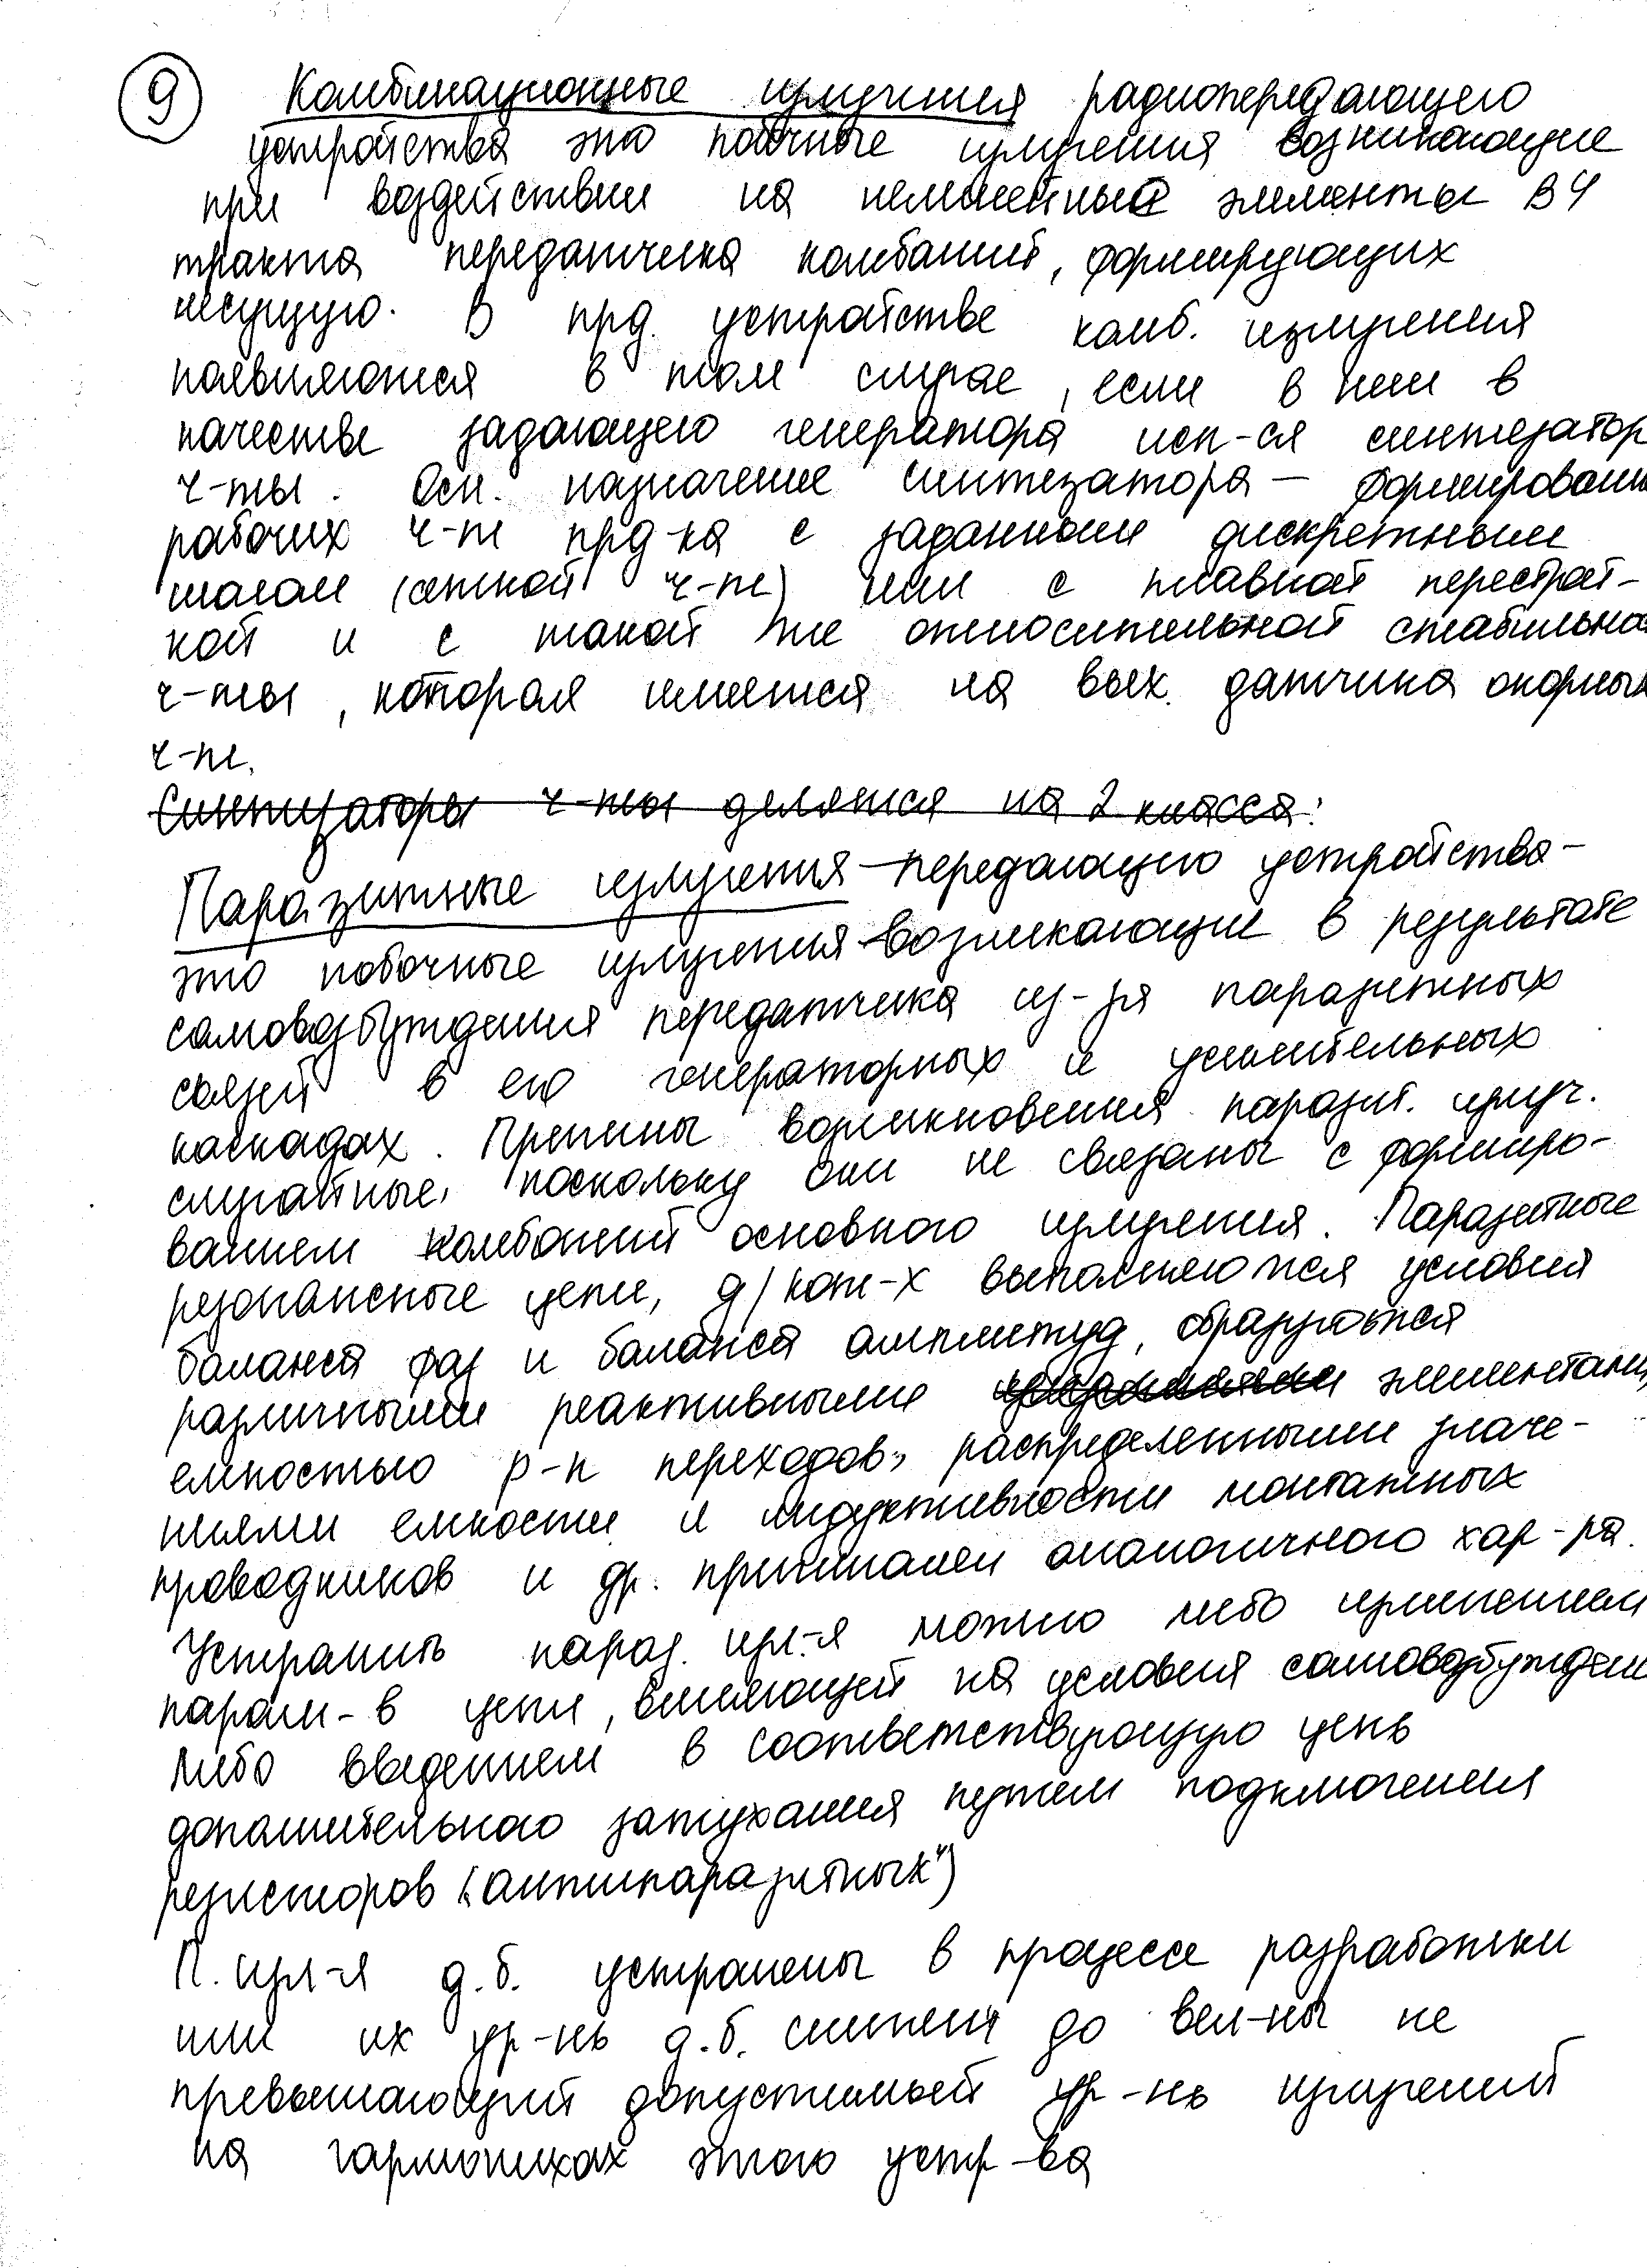 9 Комбинационные излучения радиопередающего
устройства это побочные излучения возникающие
при воздействии на нелинейные элементы ВЧ
тракта передатчика колебаний, формирующих
несущую. В прд. устройстве комб. излучения
появляются в том случае, если в нем в
качестве задающего генератора исп-ся синтезатор
ч-ты. Осн. назначение синтезатора – формировани
рабочих ч-т прд-ка с заданным дискретным
шагом (сеткой ч-т) или с плавной перестрой-
кой и с такой же относительной стабильно
ч-ты, которая имеется на вых. датчика опорных
ч-т.
Синтезаторы ч-ты делятся на 2 класса:
Паразитные излучения передающего устройства –
это побочные излучения возникающие в результате
самовозбуждения передатчика из-за паразитных
связей в его генераторных и усилительных
каскадах. Причины возникновения паразит. излуч.
случайные, поскольку они не связаны с формиро-
ванием колебаний основного излучения. Паразитные
резонансные цепи, д/кот-х выполняются условия
баланса фаз и баланса амплитуд, образуются
различными реактивными элементами,
емкостью p-n переходов, распределенными значе-
ниями емкости и индуктивности монтажных
проводников и др. причинами аналогичного хар-ра.
Устранить параз. изл-я можно либо изменением
парам-в цепи, влияющей на условия самовозбужден
либо введением в соответствующую цепь
дополнительного затухания путем подключения
резисторов („антипаразитных")
П. изл-я д.б. устранены в процессе разработки
или их ур-нь д.б. снижен до вел-ны не
превышающий допустимый ур-нь излучений
на гармониках этого устр-ва